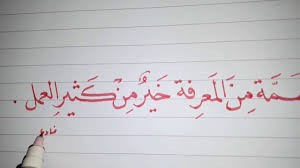 مَّة مِنَ المَعرِفة خَيرٌ مِن كَثيرِ العمل .